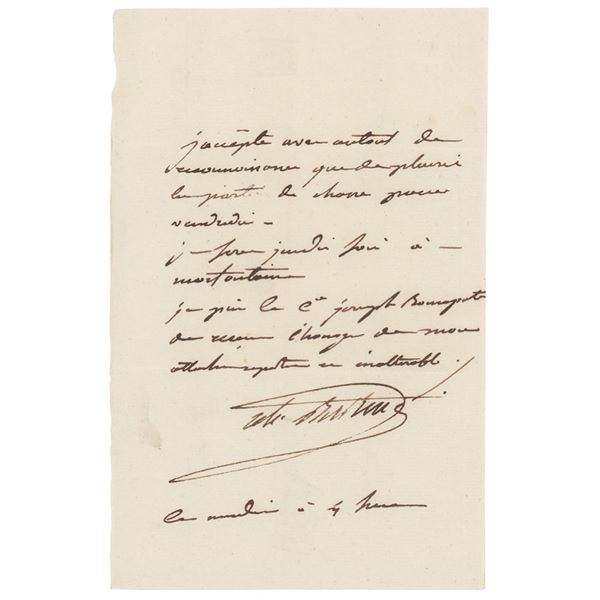 j'accepte avec autant de
reconnoissance que de plaisir
la partie de chasse pour
vendredi –
je serai jeudi soir à –
mortfontaine
je prie le Cen joseph Bonaparte
de recevoir l'homage de mon
attachement inalterable.
ce mardi à 4 heures